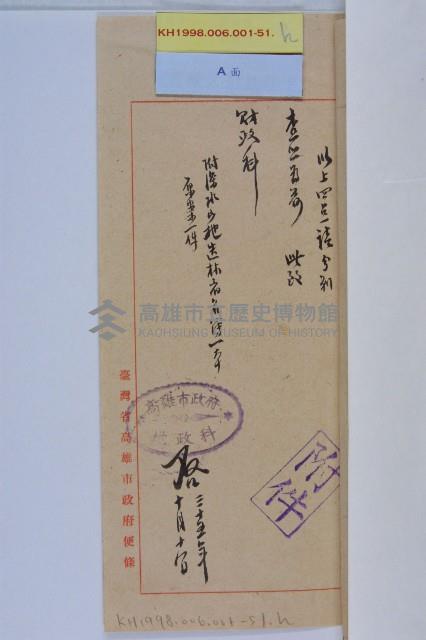 KH1998.006.001-51.h
A面
以上四点請分別
查照為荷 此致
財政科
附深水山地造林
原案一件
高雄市立歷史博物館
KAOHSIUNG MUSEUM OF HISTORY
高雄市政府
財政科
啓
三十五年
十月十
附件
臺灣省高雄市政府便條
KH1998.006.001-51.h